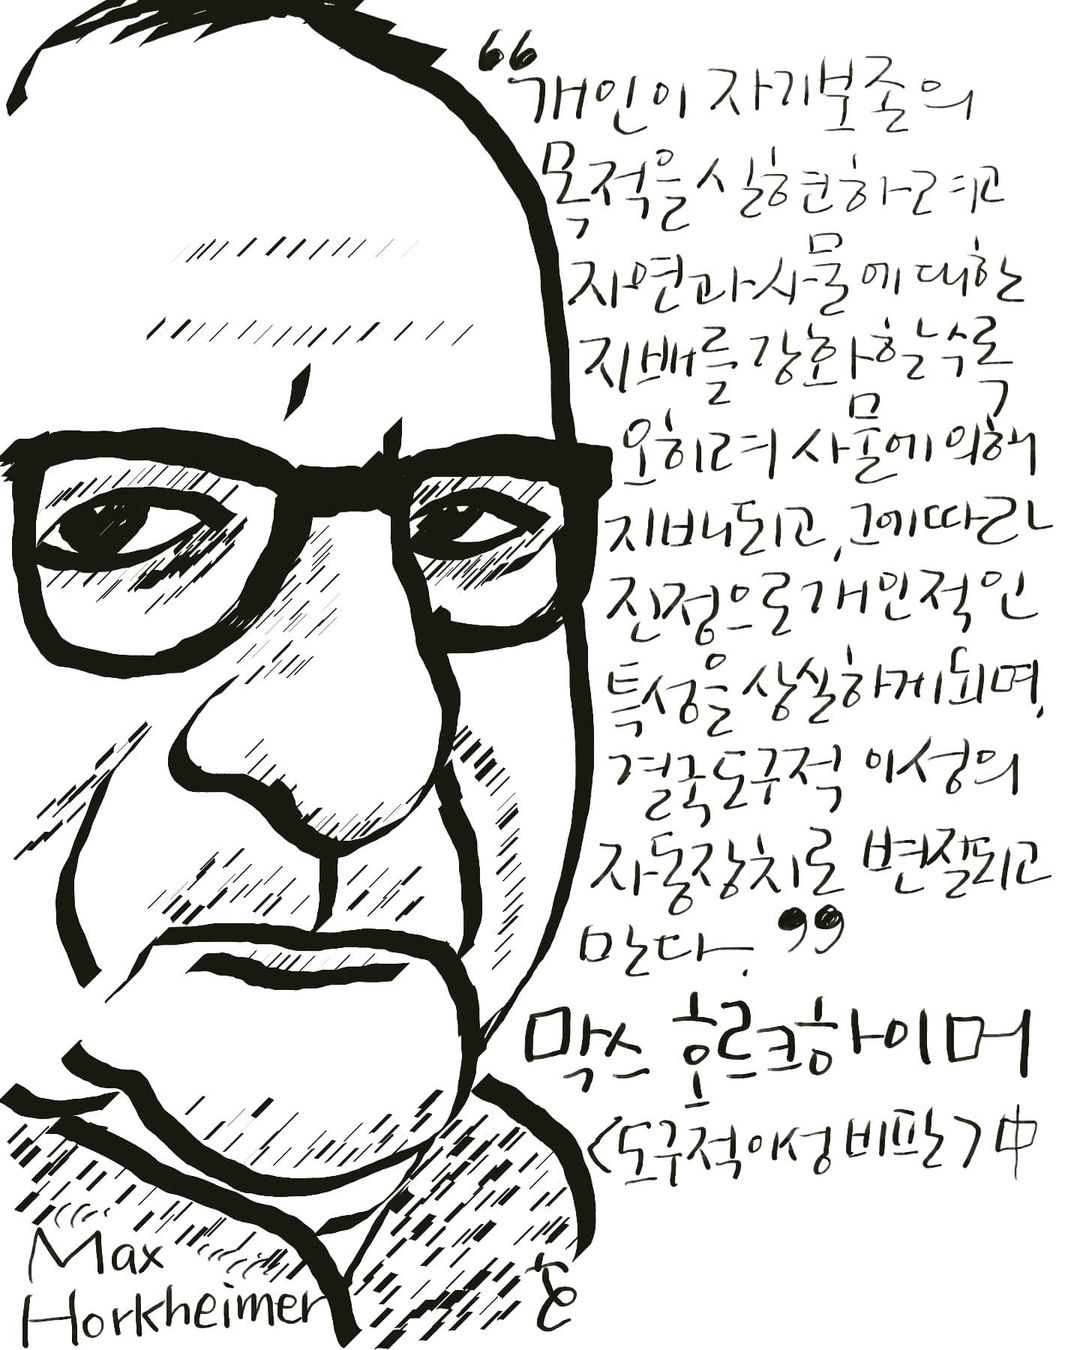 “개인이 자기보존의
목적을 실현하려고
자연과 사물에 대한
지배를 강화할수록
오히려 사물에 의해
지배되고, 그에 따라
진정으로 개인적인
특성을 상실하게 되며,
결국 도구적 이성의
자동장치로 변질되고
만다.”
막스 호르크하이머
<도구적 이성 비판> 中
Max
Horkheimer